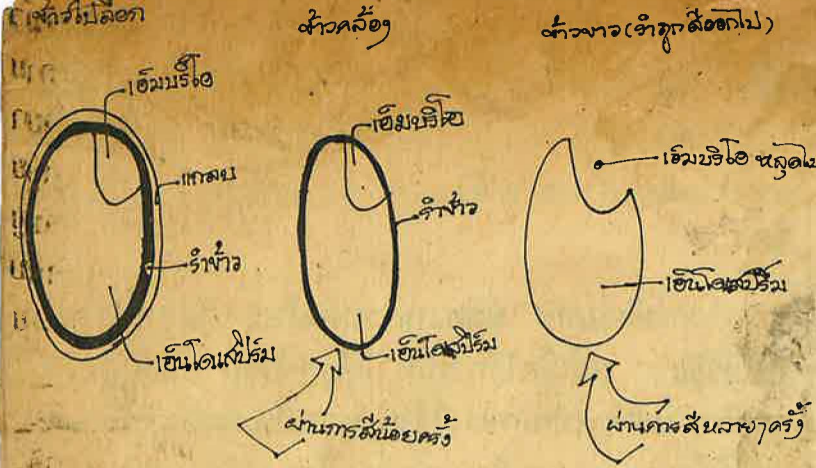 ข้าวเปลือก
เอ็มบริโอ
แกลบ
รำข้าว
เอ็นโดสเปิร์ม
ข้าวกล้อง
เอ็มบริโอ
รำข้าว
เอ็นโดสเปิร์ม
ผ่านการสีน้อยครั้ง
ข้าวขาว (รำถูกสีออกไป)
เอ็มบริโอ หลุดไป
เอ็นโดสเปิร์ม
ผ่านการสีหลายๆครั้ง